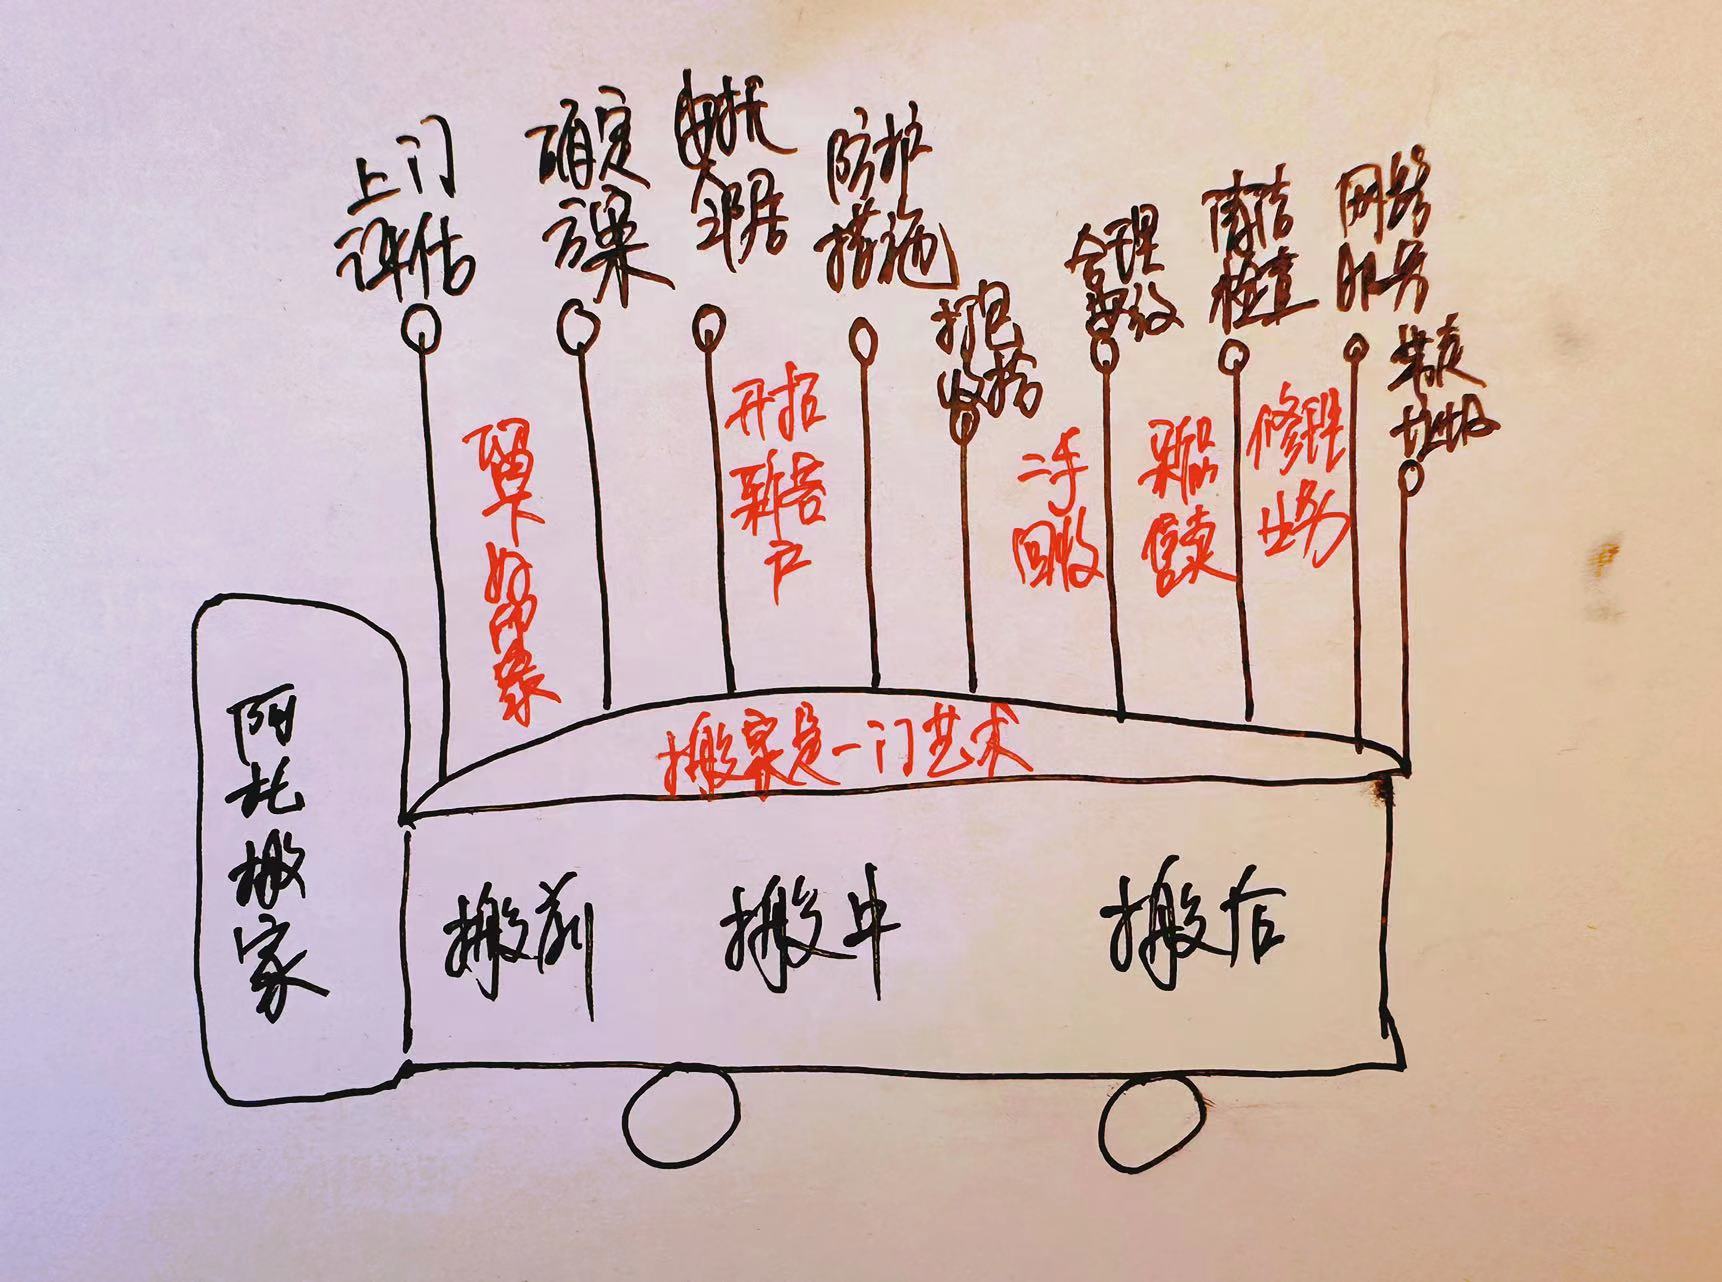 上门
评估
确定
方案
安抚
邻居
防护
措施
打包
收拾
合理
安放
清洁
检查
网络
服务
带走
垃圾
留下
好印象
开拓
新客
户
二手
回收
新品
售卖
修理
业务
搬家是一门艺术
阿托搬家
搬前
搬中
搬后